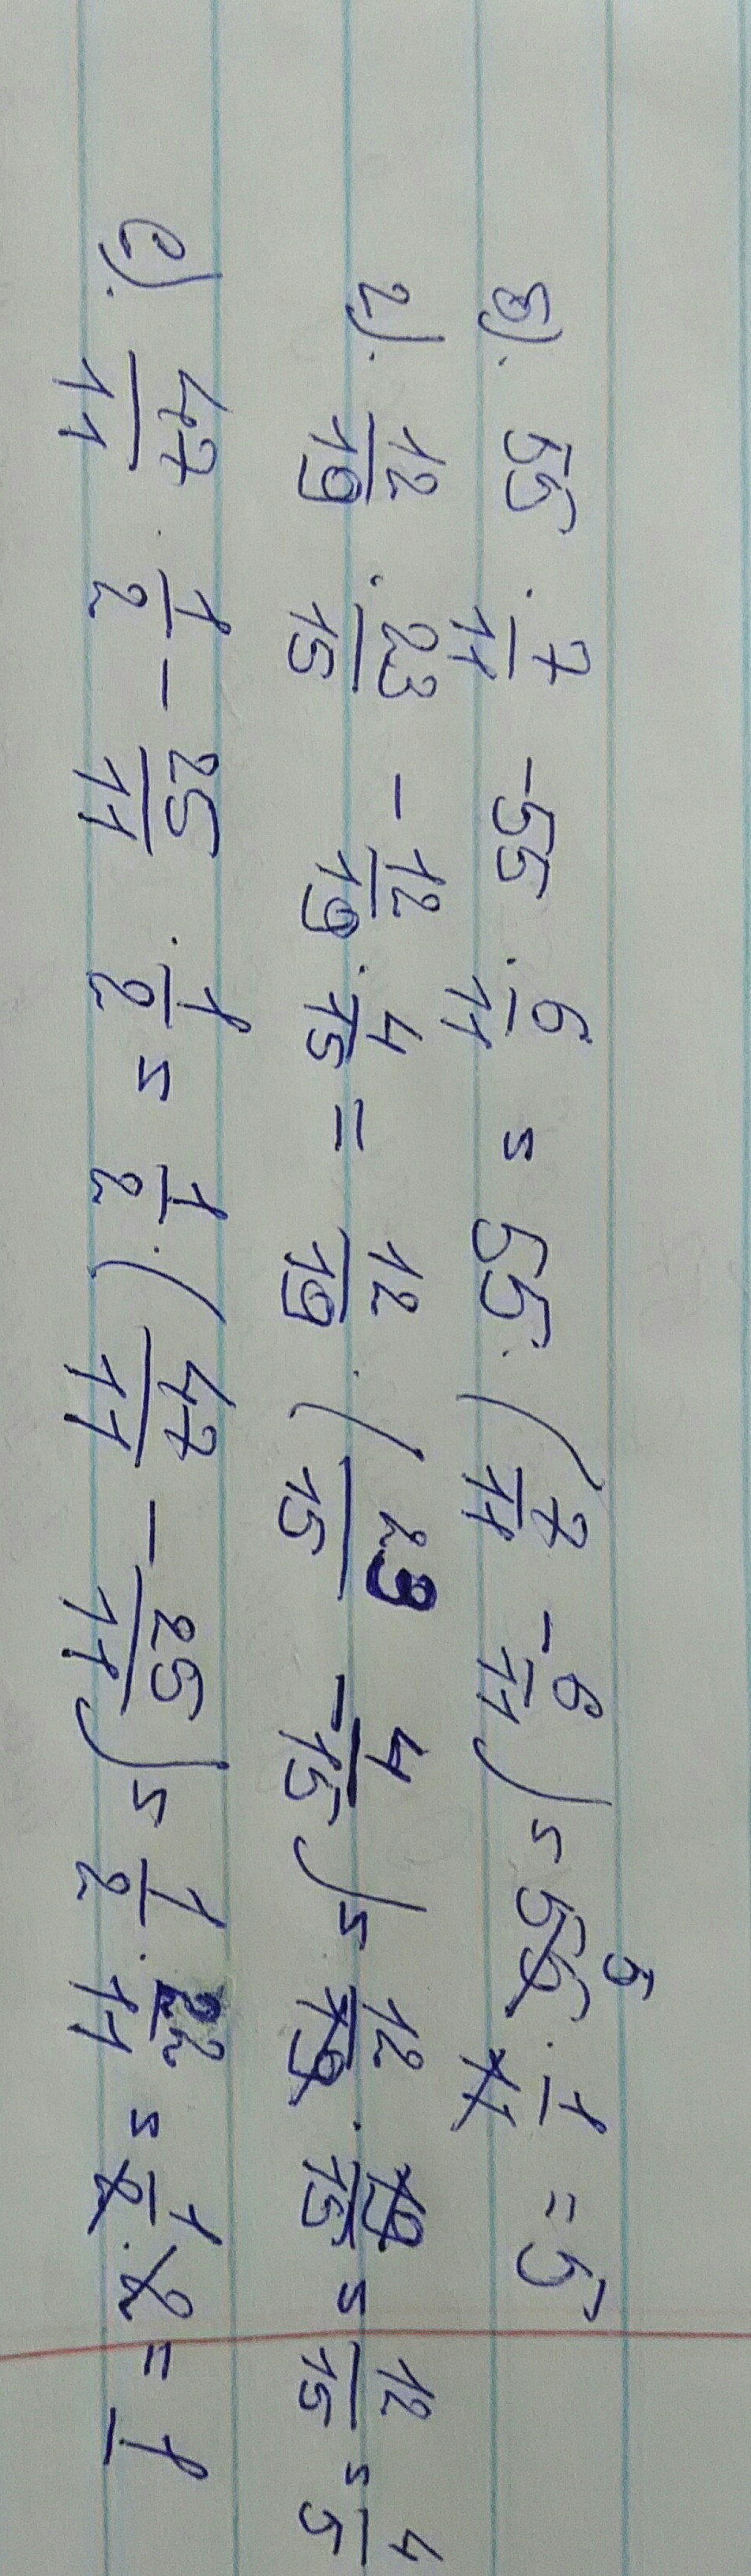 б). 55 · 7/11 - 55 · 6/11 = 55 · (7/11 - 6/11) = 55 5 · 1/11 = 5
г). 12/19 · 23/15 - 12/19 · 4/15 = 12/19 · (23/15 - 4/15) = 12/19 · 19/15 = 12/15 = 4/5
е). 47/11 · 1/2 - 25/11 · 1/2 = 1/2 · (47/11 - 25/11) = 1/2 · 22/11 = 1/2 · 2 = 1